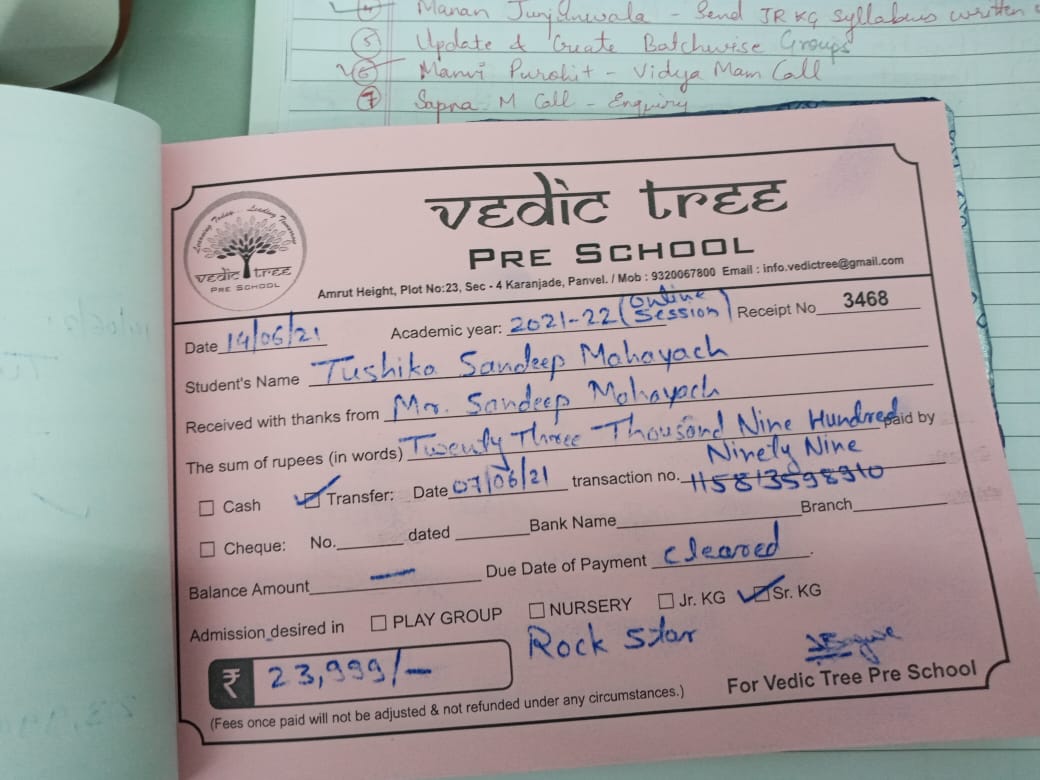 ④ Manan Junjunwala - Send JR KG syllabus written
⑤ Update & Create Batchwise Groups
⑥ Manvi Purohit - Vidya Mam Call
⑦ Sapna M Call - Enquiry
Learning Today... Leading Tomorrow
vedic tree
PRE SCHOOL
vedic tree
PRE SCHOOL
Amrut Height, Plot No:23, Sec - 4 Karanjade, Panvel. / Mob : 9320067800 Email : info.vedictree@gmail.com
Date 14/06/21 Academic year: 2021-22 (Online Session) Receipt No 3468
Student's Name Tushika Sandeep Mahayach
Received with thanks from Mr. Sandeep Mahayach
The sum of rupees (in words) Twenty Three Thousand Nine Hundred paid by
Ninety Nine
Cash Transfer: Date 07/06/21 transaction no. 115813598910
Cheque: No. dated Bank Name Branch
Balance Amount — Due Date of Payment cleared.
Admission desired in PLAY GROUP NURSERY Jr. KG Sr. KG
Rock Star
₹ 23,999/-
(Fees once paid will not be adjusted & not refunded under any circumstances.)
For Vedic Tree Pre School